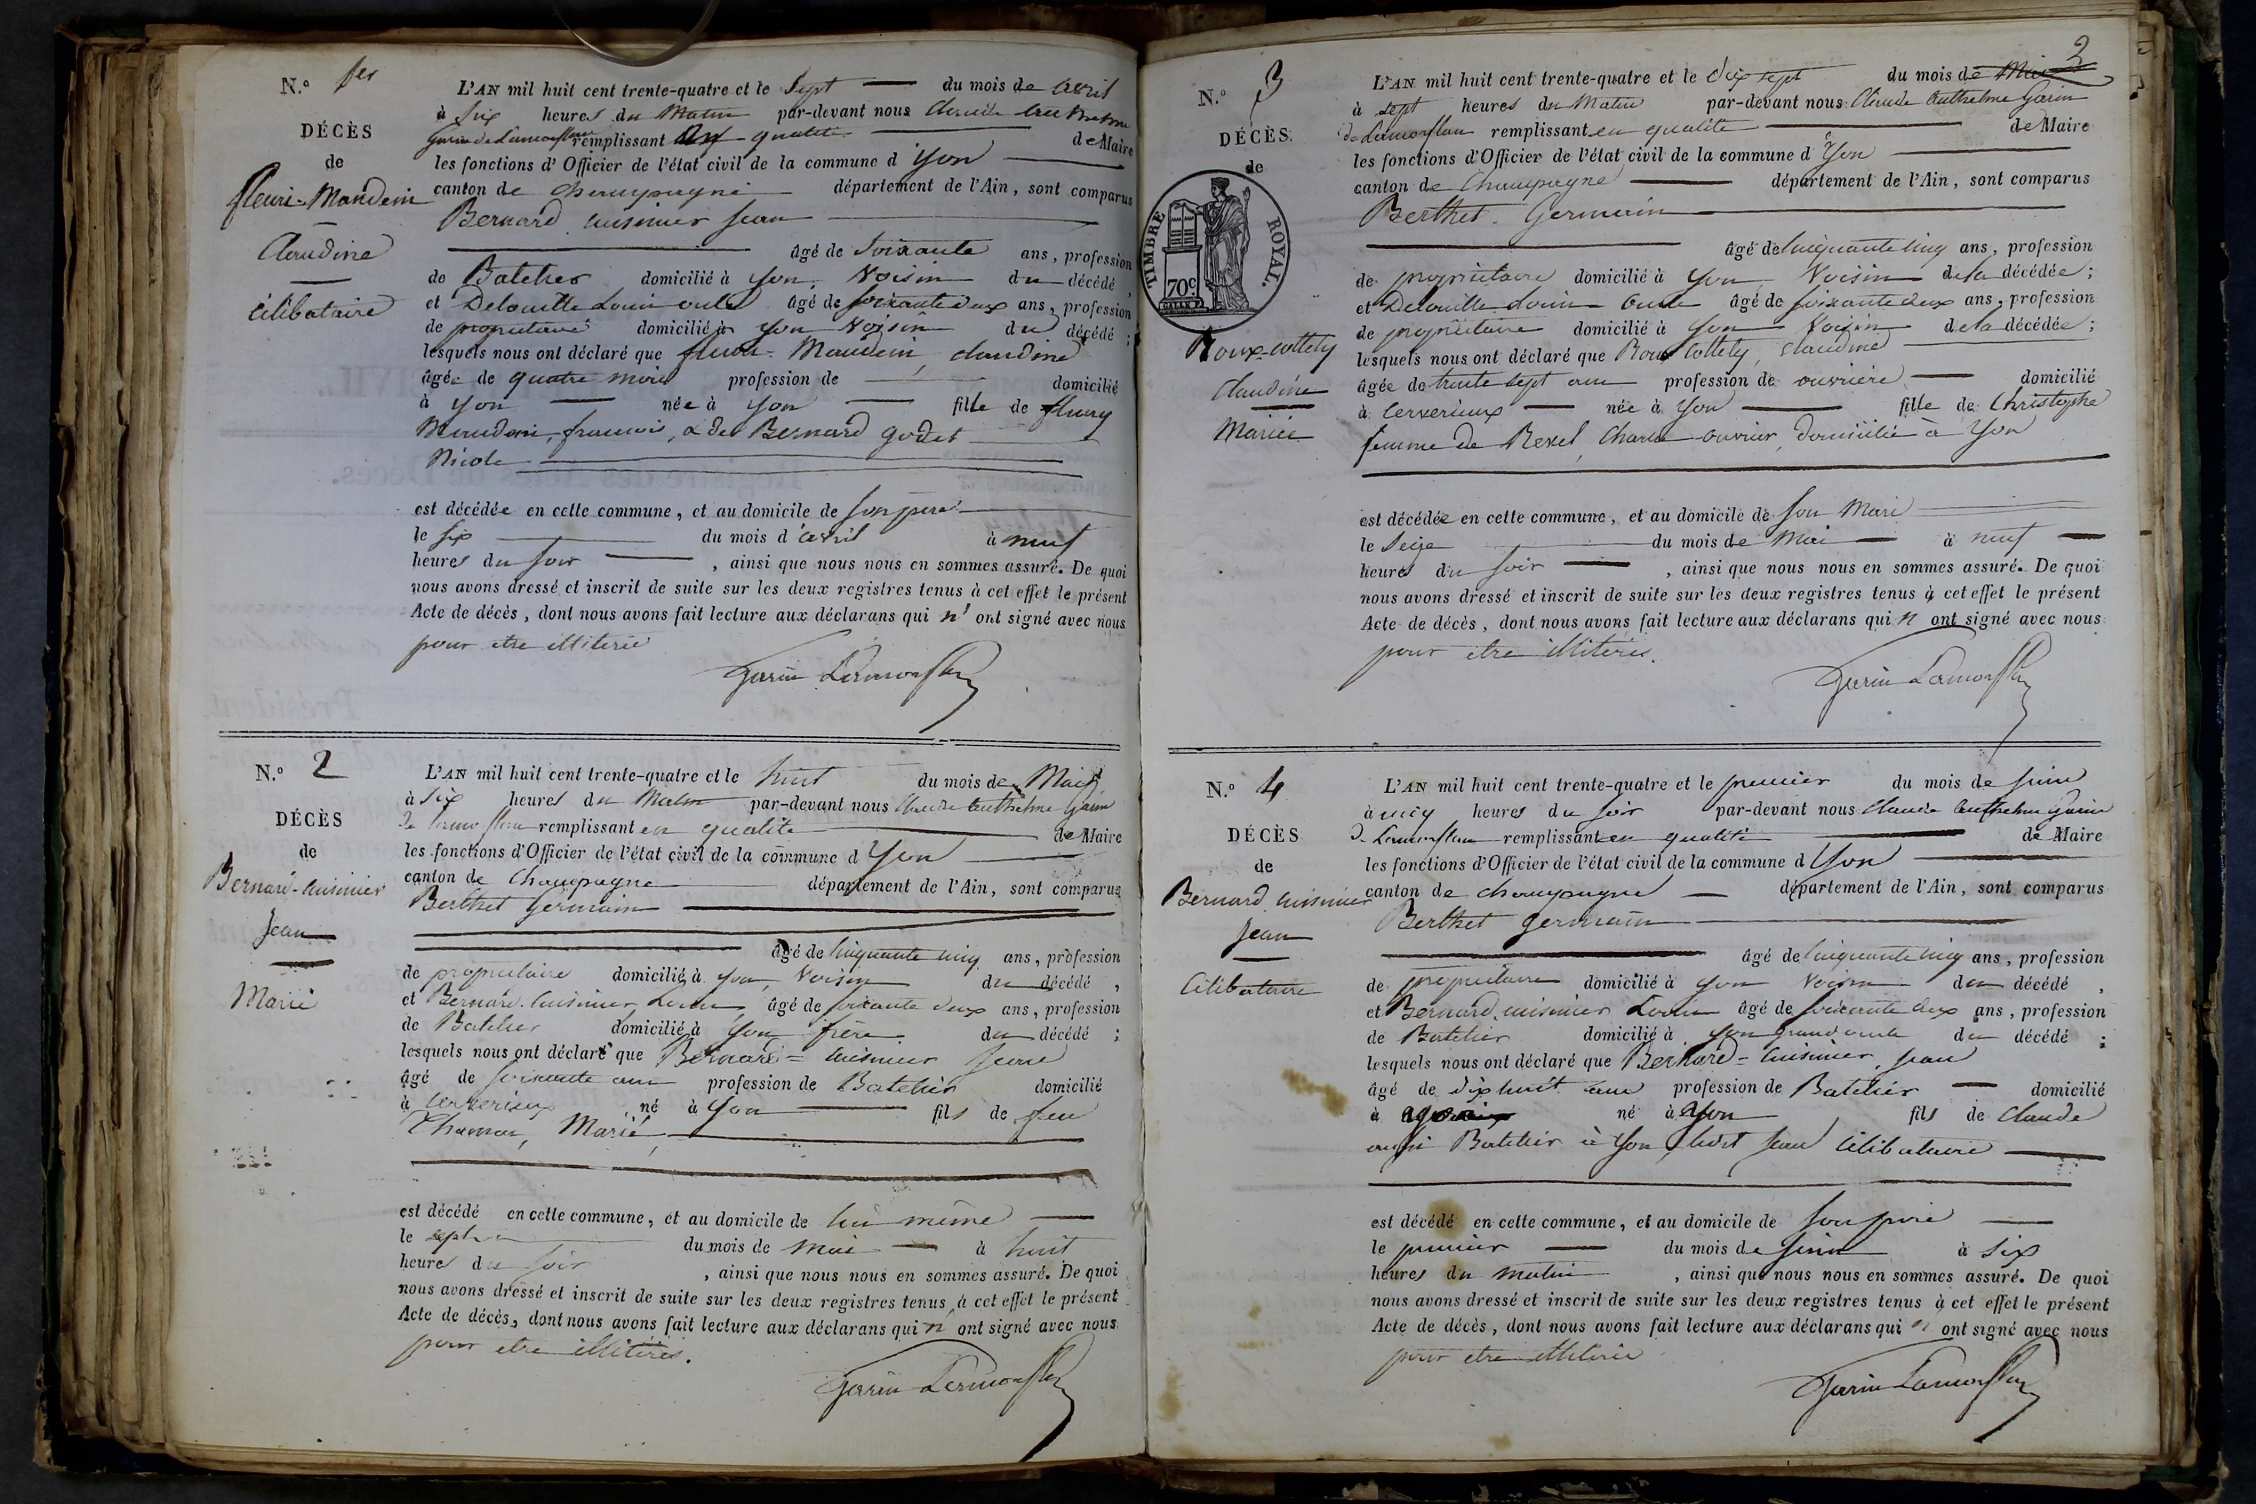 N.° 1er
DÉCÈS
de
fleuri-Maudein
Claudine
célibataire
L'AN mil huit cent trente-quatre et le Sept du mois de avril
à Six heures du Matin par-devant nous Claude Anthelme
Garin de Lamorflan remplissant en qualité de Maire
les fonctions d'Officier de l'état civil de la commune d'yon
canton de champagne département de l'Ain, sont comparus
Bernard cuisinier jean
âgé de Soixante ans, profession
de Batelier domicilié à yon, Voisin du décédé,
et Delouille Louis âgé de soixante deux ans, profession
de propriétaire domicilié à yon Voisin du décédé ;
lesquels nous ont déclaré que fleuri-Maudein, claudine
âgée de quatre mois profession de domicilié
à yon née à yon fille de fleury
Maudein, françois, & de Bernard godet
Nicole
est décédée en cette commune, et au domicile de son père
le six du mois d'avril à neuf
heures du soir, ainsi que nous nous en sommes assuré. De quoi
nous avons dressé et inscrit de suite sur les deux registres tenus à cet effet le présent
Acte de décès, dont nous avons fait lecture aux déclarans qui n'ont signé avec nous
pour etre illiteré
Garin Lamorflan
N.° 2
DÉCÈS
de
Bernard-cuisinier
Jean
Marié
L'AN mil huit cent trente-quatre et le huit du mois de Mai
à six heures du Matin par-devant nous Claude Anthelme Garin
de Lamorflan remplissant en qualité de Maire
les fonctions d'Officier de l'état civil de la commune d'yon
canton de Champagne département de l'Ain, sont comparus
Berthet Germain
âgé de cinquante cinq ans, profession
de propriétaire domicilié à yon, Voisin du décédé,
et Bernard-cuisinier Louis âgé de soixante deux ans, profession
de Batelier domicilié à yon, frère du décédé ;
lesquels nous ont déclaré que Bernard=cuisinier jean
âgé de soixante ans profession de Batelier domicilié
à Cerverieux né à yon fils de feu
Thomas, Marié,
est décédé en cette commune, et au domicile de lui même
le sept du mois de mai à huit
heures du soir, ainsi que nous nous en sommes assuré. De quoi
nous avons dressé et inscrit de suite sur les deux registres tenus à cet effet le présent
Acte de décès, dont nous avons fait lecture aux déclarans qui n'ont signé avec nous
pour etre illiterés.
Garin Lamorflan
2
N.° 3
DÉCÈS.
de
TIMBRE ROYAL.
70c
Roux-Cottety
Claudine
Mariée
L'AN mil huit cent trente-quatre et le dix sept du mois de Mai
à sept heures du Matin par-devant nous Claude Anthelme Garin
de Lamorflan remplissant en qualité de Maire
les fonctions d'Officier de l'état civil de la commune d'yon
canton de Champagne département de l'Ain, sont comparus
Berthet Germain
âgé de cinquante cinq ans, profession
de propriétaire domicilié à yon Voisin de la décédée ;
et Delouille Louis âgé de soixante deux ans, profession
de propriétaire domicilié à yon Voisin de la décédée ;
lesquels nous ont déclaré que Roux Cottety, Claudine
âgée de trente sept ans profession de ouvrière domicilié
à Cerverieux née à yon fille de Christophe
femme de Revel, Charles ouvrier, domicilié à yon
est décédée en cette commune, et au domicile de son Mari
le Seize du mois de Mai à neuf
heures du soir, ainsi que nous nous en sommes assuré. De quoi
nous avons dressé et inscrit de suite sur les deux registres tenus à cet effet le présent
Acte de décès, dont nous avons fait lecture aux déclarans qui n'ont signé avec nous
pour etre illiterés.
Garin Lamorflan
N.° 4
DÉCÈS
de
Bernard cuisinier
Jean
Célibataire
L'AN mil huit cent trente-quatre et le premier du mois de juin
à cinq heures du soir par-devant nous Claude Anthelme Garin
de Lamorflan remplissant en qualité de Maire
les fonctions d'Officier de l'état civil de la commune d'yon
canton de champagne département de l'Ain, sont comparus
Berthet germain
âgé de cinquante cinq ans, profession
de propriétaire domicilié à yon Voisin du décédé,
et Bernard cuisinier Louis âgé de soixante deux ans, profession
de Batelier domicilié à yon grand oncle du décédé ;
lesquels nous ont déclaré que Bernard=cuisinier, jean
âgé de dix huit ans profession de Batelier domicilié
à né à yon fils de Claude
aussi Batelier à yon, ledit jean célibataire
est décédé en cette commune, et au domicile de son père
le premier du mois de juin à six
heures du matin, ainsi que nous nous en sommes assuré. De quoi
nous avons dressé et inscrit de suite sur les deux registres tenus à cet effet le présent
Acte de décès, dont nous avons fait lecture aux déclarans qui n'ont signé avec nous
pour etre illiteré
Garin Lamorflan